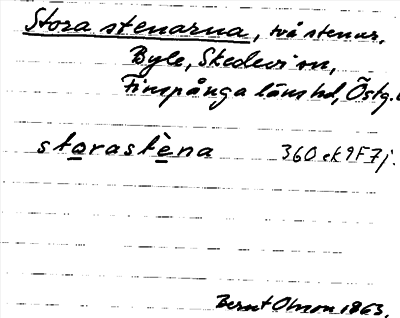 Stora stenarna, två stenar.
Byle, Skedevi sn,
Finspånga läns hd, Östg.
storastèna 360 ek 9F7j.
Bernt Olsson 1963.